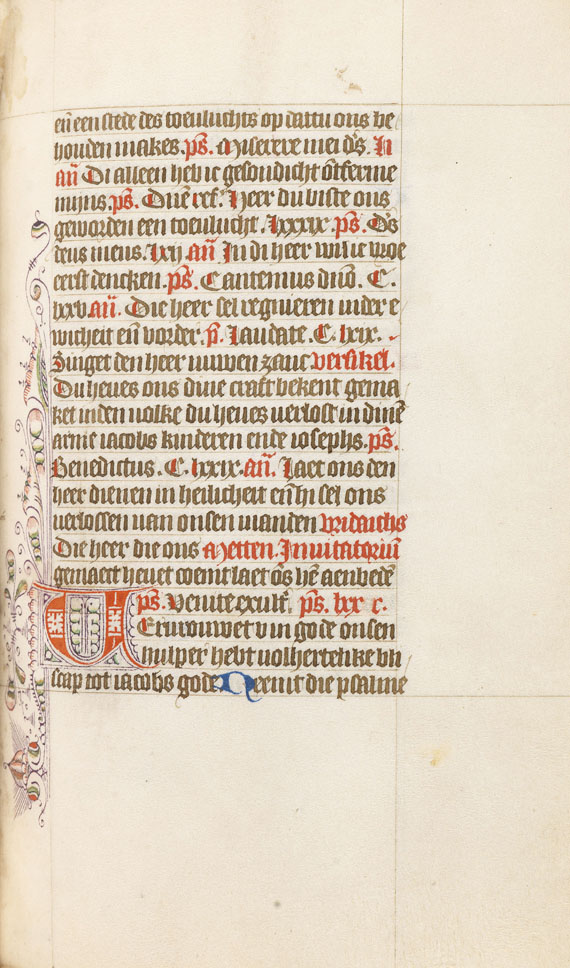 eñ een stede des toeuluchts op dattu ons be
houden makes. ps. Miserere mei ds̄. In
añ Di alleen heb ic gesondicht ōtferme
mijns. ps. Dnē ref. Heer du biste ons
geworden een toeulucht. lxxxix. ps. Ds̄
deus meus. lxij añ In di heer wil ic vroe
eerst dencken. ps. Cantemus dnō. C.
lxxv. añ. Die heer sel regnieren inder e
wicheit eñ vorder. p̄. Laudate. C. lxix.
Zinget den heer nuwen zanc versikel.
Du heues ons dine craft bekent gema
ket inden uolke du heues uerlost in dinē
arme iacobs kinderen ende iosephs. ps.
Benedictus. C. lxxix. añ. Laet ons den
heer dienen in heilicheit eñ hi sel ons
uerlossen uan onsen uianden vridaichs
Die heer die ons Metten. Inuitatoriū
gemaect heuet coemt laet ōs hē aenbedē
ps. Venite exult̄. ps. lxx c.
Ervrouwet v in gode onsen
hulper hebt uolhertelike bli
scap tot iacobs gode Neemt die psalme